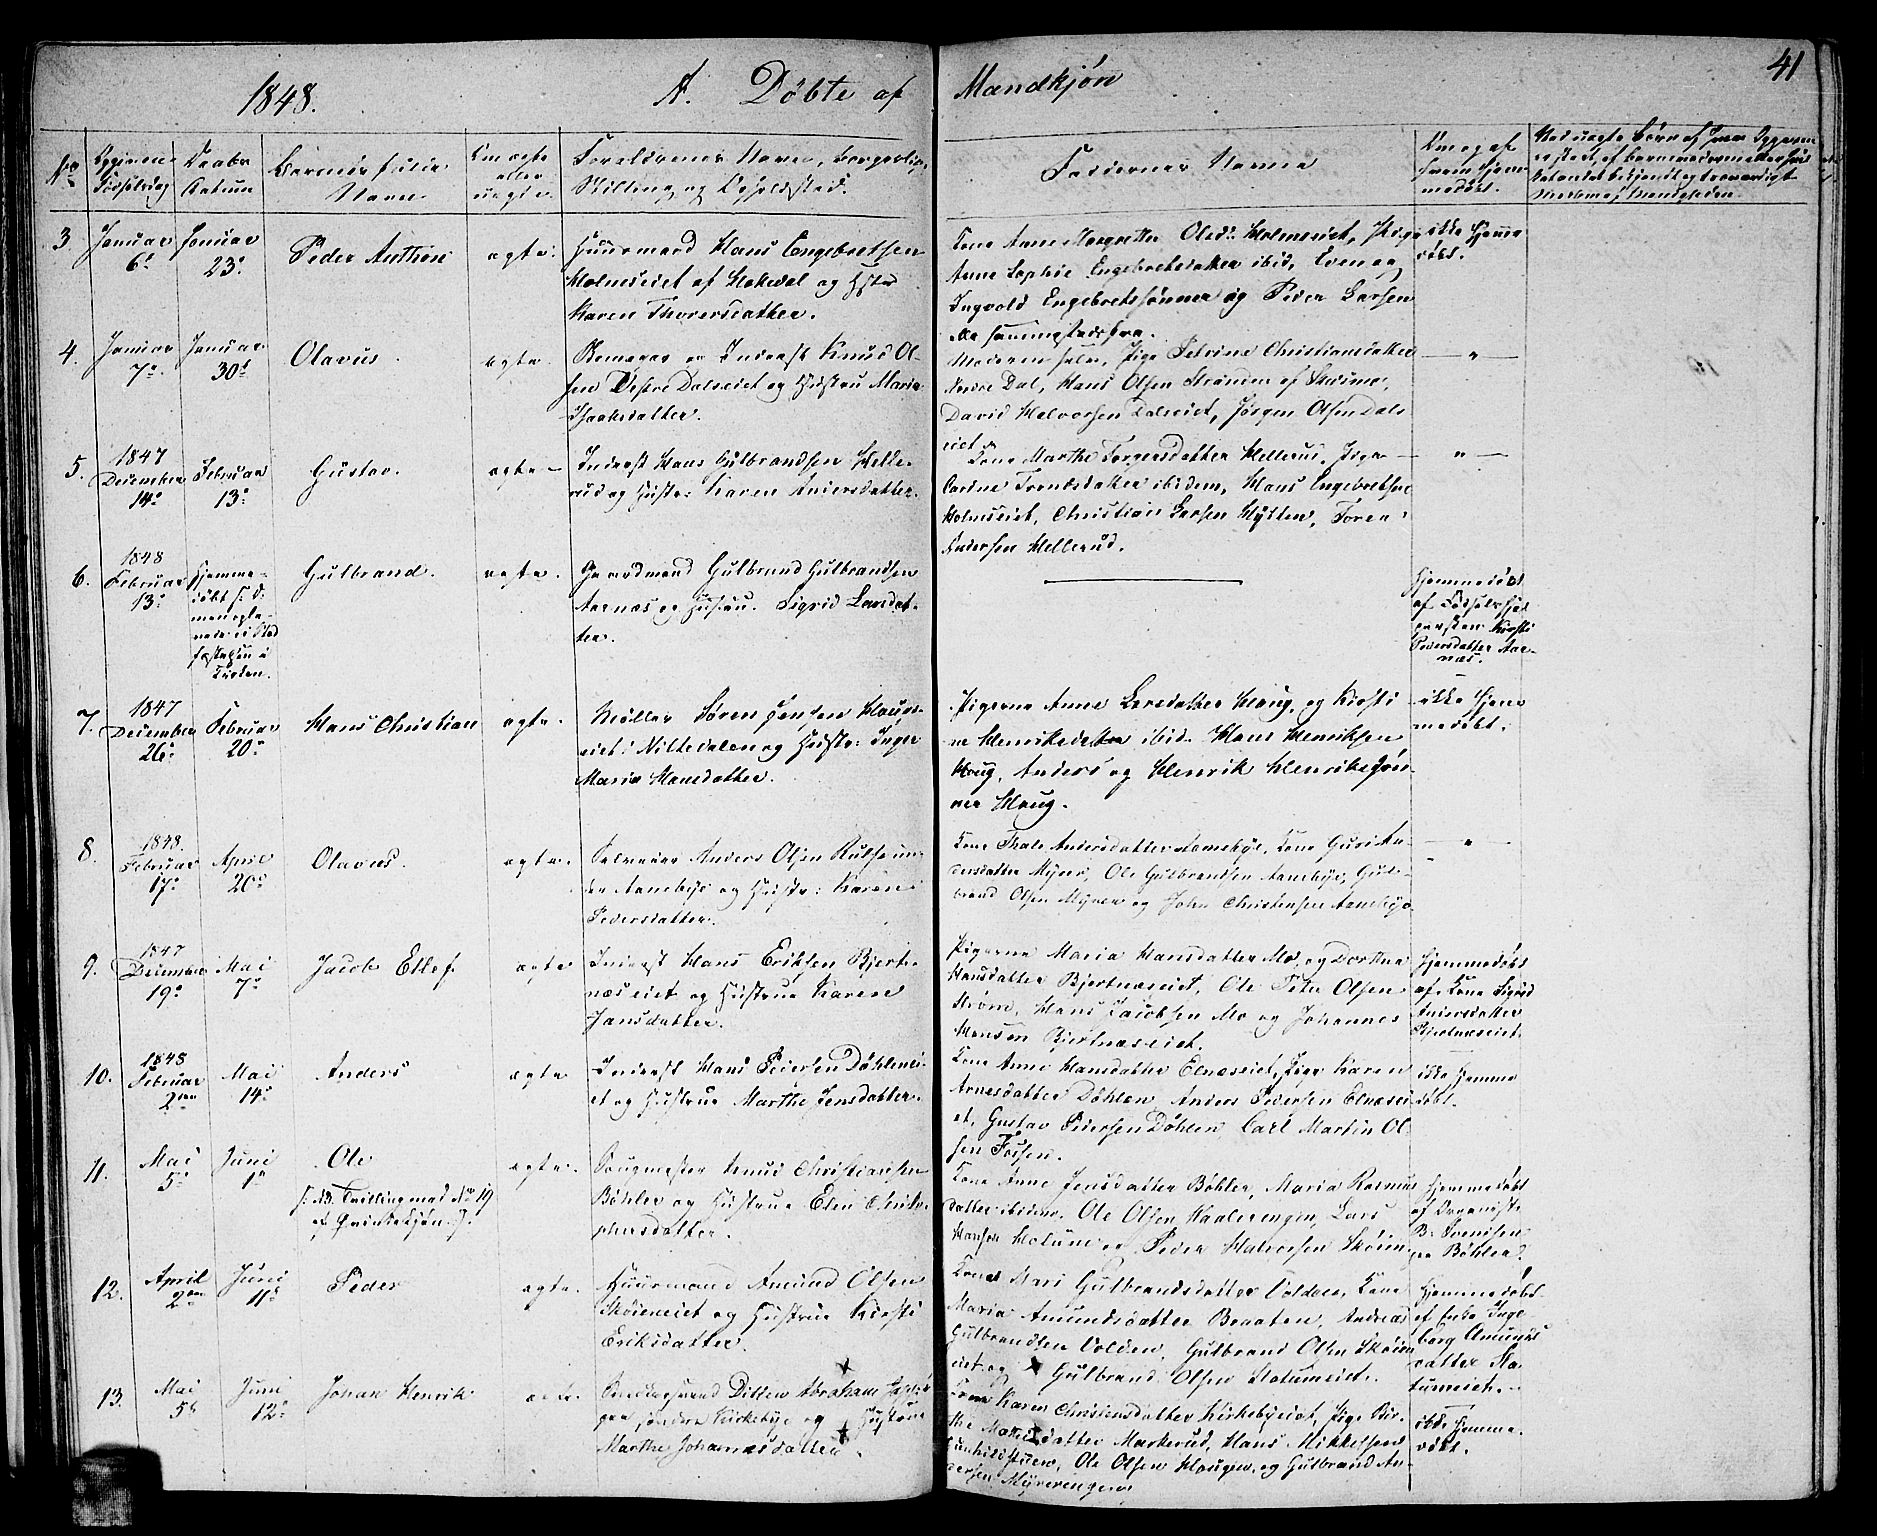 41
1848.
A. Döbte af Mandkjön
No
Födselsdag
Daabs
Datum
Barnets fulde
Navn
Om ægte
eller
uægte.
Forældrenes Navn, Borgerlige
Stilling og Opholdssted.
Faddernes Navne
Om og af
hvem hjem-
medöbt.
3.
Januar
6te
Januar
23de
Peder Anthon
ægte.
Huusmand Hans Engebretsen
Holmseiet af Hakedal og Hstr
Karen Thorersdatter.
Kone Anne Margrethe Olsdr Holmseiet, Pige
Anne Sophie Engebretsdatter ibid, Even og
Ingvold Engebretssönner og Peder Larsen
ikke hjemme
döbt.
4.
Januar
7de
Januar
30te
Olavus.
ægte.
Inderst Knud Ol-
sen Vestre Dalseiet og Hustru Maria
Isaksdatter.
Moderen selv, Pige Petrine Christiansdatter
Nedre Dal, Hans Olsen Stranden af
David Halvorsen Dalseiet, Jörgen Olsen Dals
eiet
— " —
5.
1847
December
14de
Februar
13de
Gustav.
ægte
Inderst Hans Gulbrandsen Helle-
rud og Hustr: Karen Andersdatter.
Kone Marthe Torgersdatter Hellerud, Pige
Carine Trondsdatter ibidem, Hans Engebretsen
Holmseiet, Christian Larsen Hytten, Toren
Andersen Hellerud.
— " —
6.
1848
Februar
13de
Hjemme-
döbt
Kirken.
Gulbrand.
ægte.
Gaardmand Gulbrand Gulbrandsen
Aarnæs og Hustru. Sigrid Larsdat-
ter.
Hjemmedöbt
af Födselshjel
persken Kirsti
Pedersdatter Aar-
næs.
7.
1847
December
26de
Februar
20de
Hans Christian
ægte.
Möller Sören Jensen Haugs-
eiet i Nittedalen og Hustr: Inger
Maria Hansdatter.
Pigerne Anne Larsdatter Haug, og Kirsti
ne Henriksdatter ibid. Hans Henriksen
Haug, Anders og Henrik Henrikssön-
ner Haug.
ikke hjem
medöbt.
8.
1848.
Februar
17de
April
20de
Olaves.
ægte.
Anders Olsen
der Aaneby og Hustr: Karen
Pedersdatter.
Kone Thale Andersdatter Aaneby, Kone Guri An-
dersdatter Myrer, Ole Gulbrandsen Aaneby, Gul-
brand Olsen Myrer og John Christensen Aaneby
— " —
9.
1847
December
19de
Mai
7de
Jacob Ellef.
ægte
Inderst Hans Eriksen Bjert-
næseiet og Hustrue Karen
Jansdatter.
Pigerne Maria Hansdatter Mo, og Dorthea
Hansdatter Bjertnæseiet, Ole Peter Olsen
Ström, Hans Jacobsen Mo og Johannes
Hansen Bjertnæseiet.
Hjemmedöbt
af Kone Sigrid
Andersdatter
Bjertnæseiet.
10.
1848
Februar
2den
Mai
14de
Anders
ægte
Inderst Hans Pedersen Döhlenei-
et og Hustrue Marthe Jensdatter.
Kone Anne Hansdatter Elnæseiet, Pige Karen
Arnesdatter Döhlen, Anders Pedersen Elnæsei-
et, Gustav Pedersen Döhlen, Carl Martin Ol-
sen Fossen.
ikke hjemme
döbt.
11.
Mai
5te
Juni
1te
Ole
[: NB. Tvilling med No 19
af Qvindekjön. :]
ægte.
Brugmester Knud Christiansen
Böhler og Hustrue Elen Christo-
phersdatter.
Kone Anne Jensdatter Böhler, Maria Rasmus
datter ibidem. Ole Olsen Haalerengen, Lars
Hansen Holum og Peder Halvorsen Sköien
Hjemmedöbt
af Organist
B. Svendsen
Böhler.
12.
April
2den
Juni
11te
Peder
ægte.
Huusmand Amund Olsen
Sköieneiet og Hustrue Kirsti
Eriksdatter.
Kone Mari Gulbrandsdatter Volden, Kone
Maria Amundsdatter Braaten, Andreas
Gulbrandsen Volden, Gulbrand Olsen Sköien
eiet og Gulbrand Olsen Slatumeiet.
Hjemmedöbt
af Enke Inge
borg Amunds
datter Sla-
tumeiet.
13.
Mai
5te
Juni
12te
Johan Henrik
ægte.
Ditlev Abraham
söndre Kirkeby og Hustrue
Marthe Johannesdatter.
Kone Karen Christensdatter Kirkebyeiet, Pige Bir-
the datter Markerud, Hans Mikkelsen
Ole Olsen Haugen, og Gulbrand An-
dersen Myrerengen.
ikke hjemme
döbt.